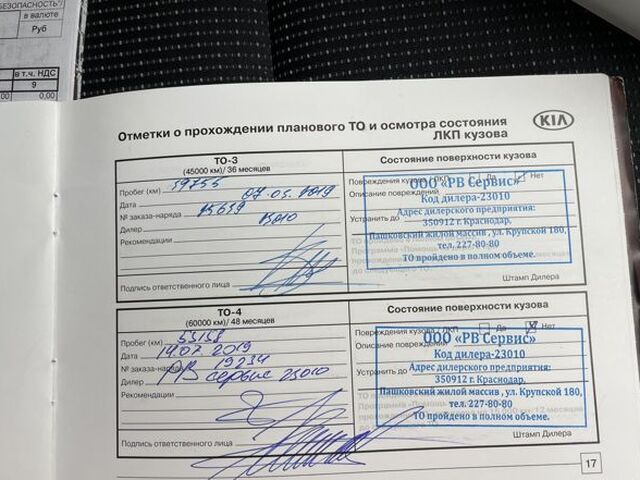 БЕЗОПАСНОСТЬ"/
в валюте
Руб
в т.ч. НДС
9
0,00
KIA
Отметки о прохождении планового ТО и осмотра состояния
ЛКП кузова
ТО-3
(45000 км)/ 36 месяцев
Состояние поверхности кузова
Пробег (км) 39755
Повреждения кузова / ЛКП Да Нет
Дата 07.03.2019
Описание повреждений
№ заказа-наряда
Дилер 23010
Устранить до
Рекомендации
Подпись ответственного лица
Штамп Дилера
ООО «РВ Сервис»
Код дилера-23010
Адрес дилерского предприятия:
350912 г. Краснодар,
Пашковский жилой массив , ул. Крупской 180,
тел. 227-80-80
ТО пройдено в полном объеме.
ТО-4
(60000 км)/ 48 месяцев
Состояние поверхности кузова
Пробег (км) 53158
Повреждения кузова / ЛКП Да Нет
Дата 14.07.2019
№ заказа-наряда 19234
Дилер РВ сервис 23010
Устранить до
Рекомендации
Подпись ответственного лица
Штамп Дилера
ООО «РВ Сервис»
Код дилера-23010
Адрес дилерского предприятия:
350912 г. Краснодар,
Пашковский жилой массив , ул. Крупской 180,
тел. 227-80-80
ТО пройдено в полном объеме.
17